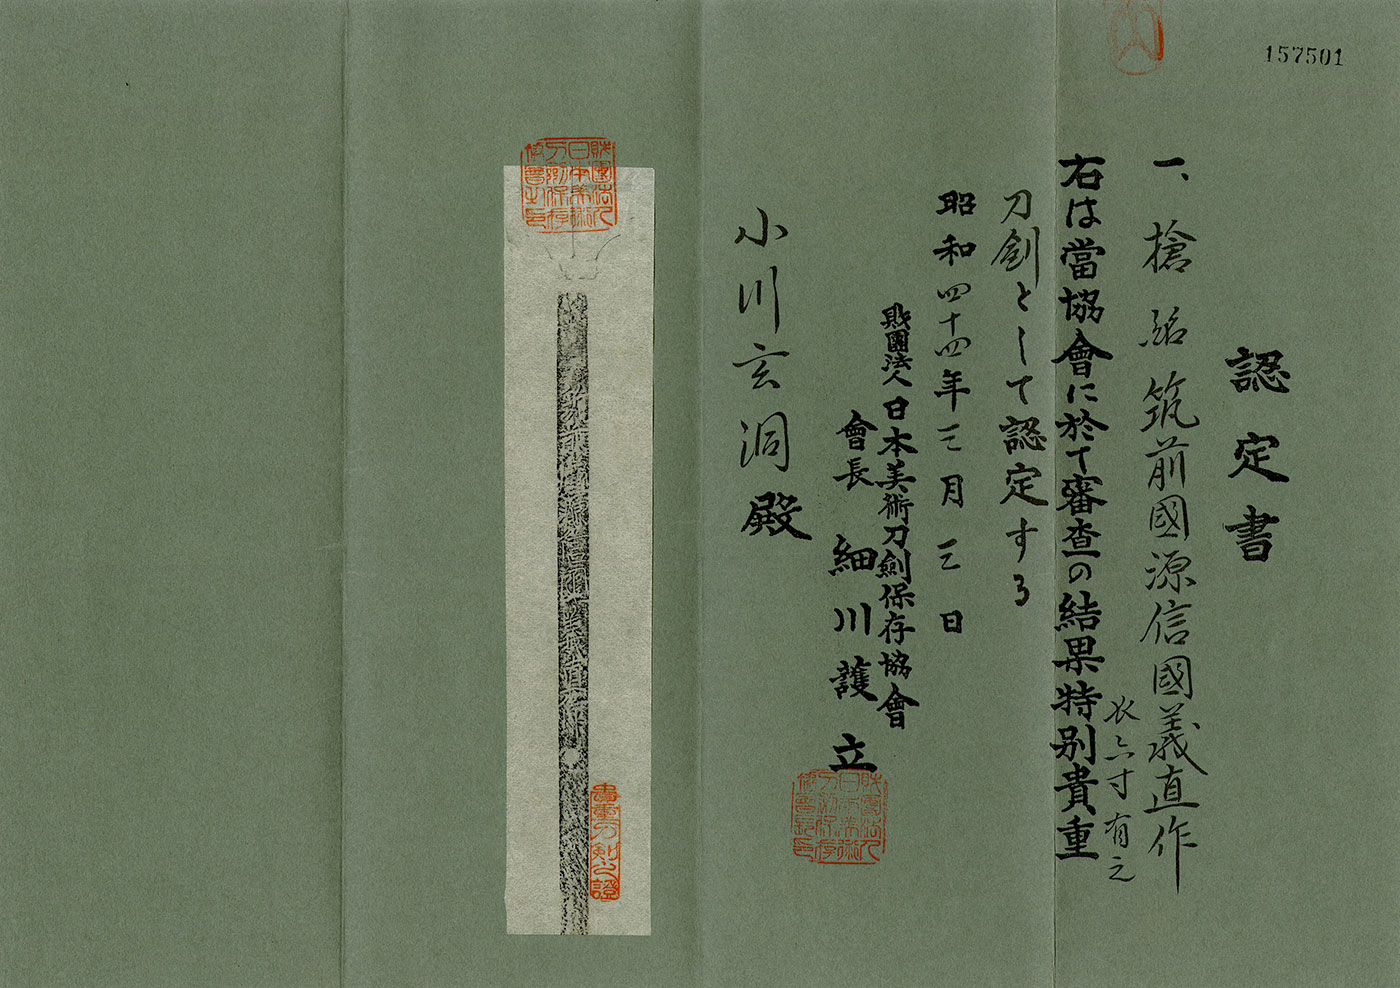 157501
認定書
一、槍 銘 筑前國源信國義直作
長六寸有之
右は當協會に於て審査の結果特別貴重
刀劍として認定する
昭和四十四年三月三日
財團法人日本美術刀劍保存協會
會長 細川護立
小川玄洞殿
財團法人日本美術刀劍保存協會之印
貴重刀剣之證
財團法人日本美術刀劍保存協會長印